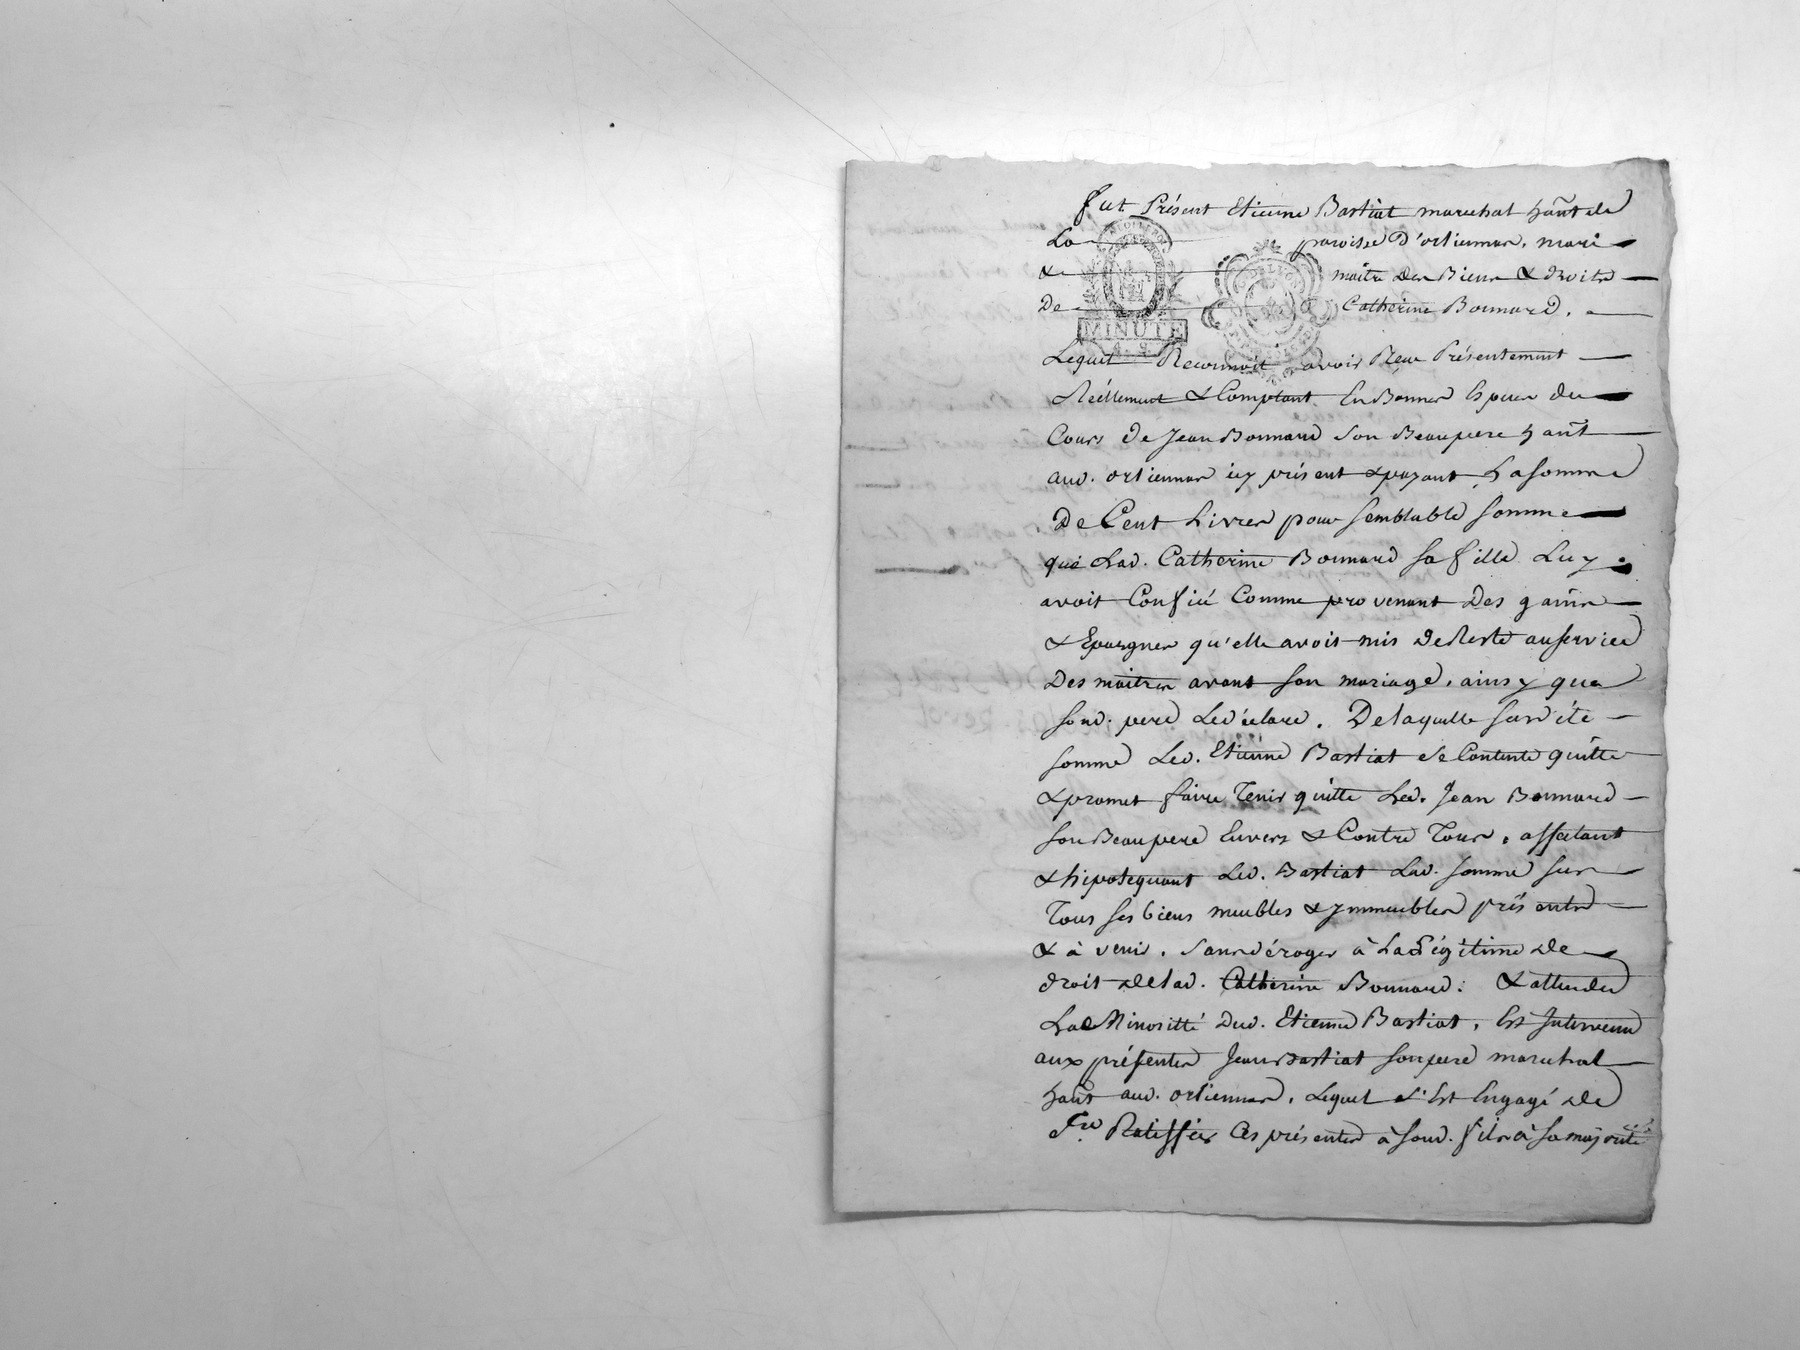 fut Présent Etienne Bastiat marechal hant de
La paroisse D'orliennas, mari
& maitre des Biens & droits
De Catherine Bonnard.
MINUTE
Lequel Reconnoit avoir Reçu Présentement
Réellement & Comptant En Bonnes Espèces du
Cours de Jean Bonnard son Beaupere hant
aud. orliennas icy présent & payant La somme
De Cent Livres pour semblable somme
que Lad. Catherine Bonnard sa fille Luy
avoit Confié Comme provenant Des gains
& Epargnes qu'elle avoit mis De Reste au service
Des maitres avant son mariage, ainsy que
sond. pere Le déclare. De laquelle susdite
somme Led. Etienne Bastiat se Contente quitte
& promet faire Tenir quitte Led. Jean Bonnard
son Beaupere Envers & Contre Tous, affectant
& hipotequant Led. Bastiat Lad. somme sur
Tous ses biens meubles & ymmeubles présents
& à venir. sans déroger à La Légitime de
droit de lad. Catherine Bonnard: & attendu
La Minoritté Dud. Etienne Bastiat, Est Intervenu
aux présentes Jean Bastiat son pere marechal
hant aud. orliennas, Lequel s'Est Engagé de
fre Ratiffier Ces présentes à sond. fils à sa majorité